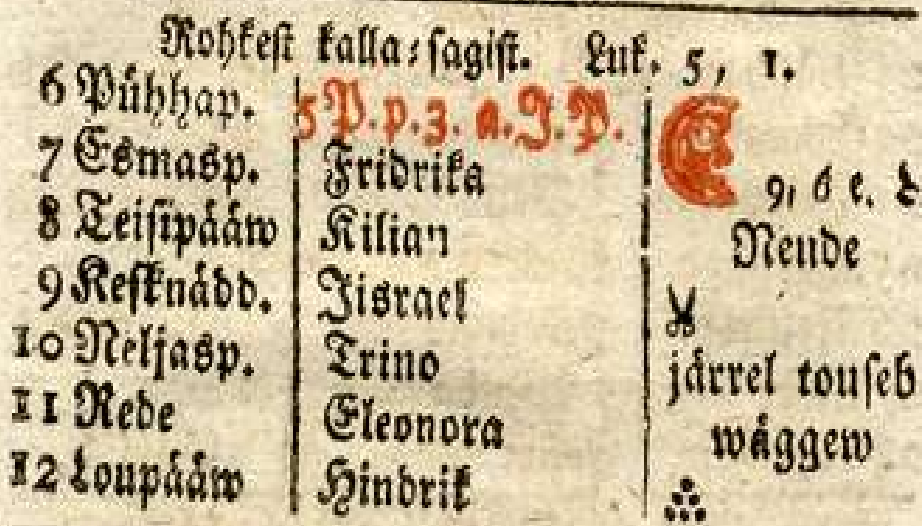 Rohkest kalla-sagist. Luk. 5, 1.
6 Pühhap. 5 P. p. 3. a. J. P.
7 Esmasp. Fridrika 9, 6 e. L
8 Teisipääw Kilian Nende
9 Kesknädd. Jisrael
10 Neljasp. Trino järrel touseb
11 Rede Eleonora wäggew
12 Loupääw Hindrik